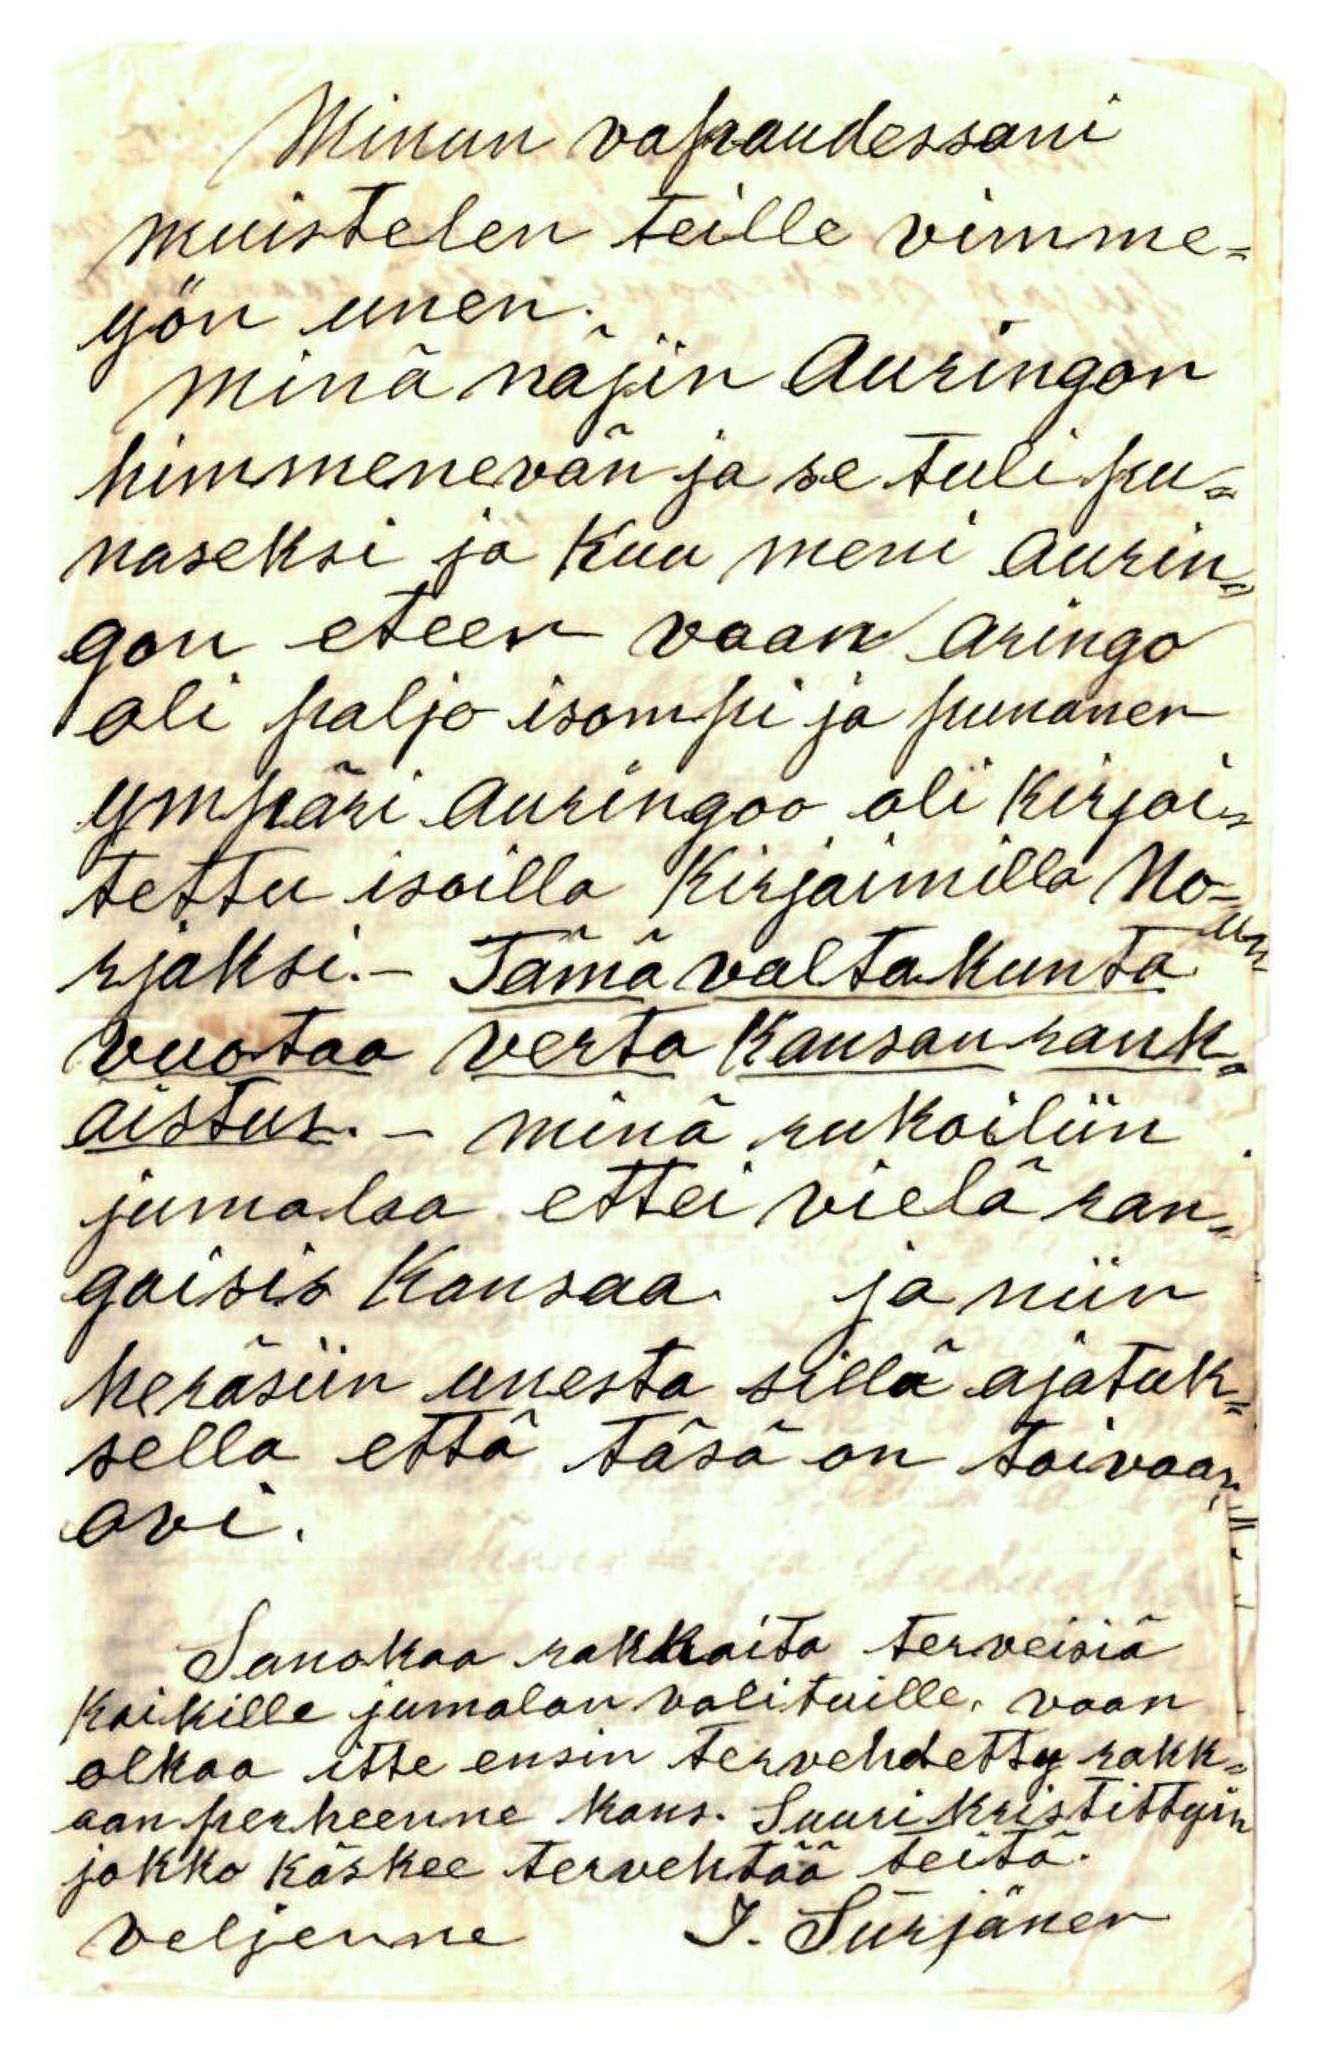 Minun vapaudessani
muistelen teille vimme=
yön unen.
minä näjin Auringon
himmenevän ja se tuli pu=
naseksi ja Kuu meni Aurin=
gon eteen vaan Aringo
oli paljo isompi ja punanen
ympäri Auringoo oli Kirjoi=
tettu isoilla Kirjaimilla No=
rjaksi. - Tämä valtakunta
vuotaa verta Kansan rank=
aistus. - minä rukoiliin
jumalaa ettei vielä ran=
gaisis Kansaa. ja niin
heräsiin unesta sillä ajatuk=
sella että täsä on toivoon
ovi.
Sanokaa rakkaita terveisiä
Kaikille jumalan valituille. vaan
olkaa itte ensin tervehdetty rakk=
aan perheenne kans. Suuri kristittyin
jokko käskee tervehtää teitä.
veljenne J. Surjänen